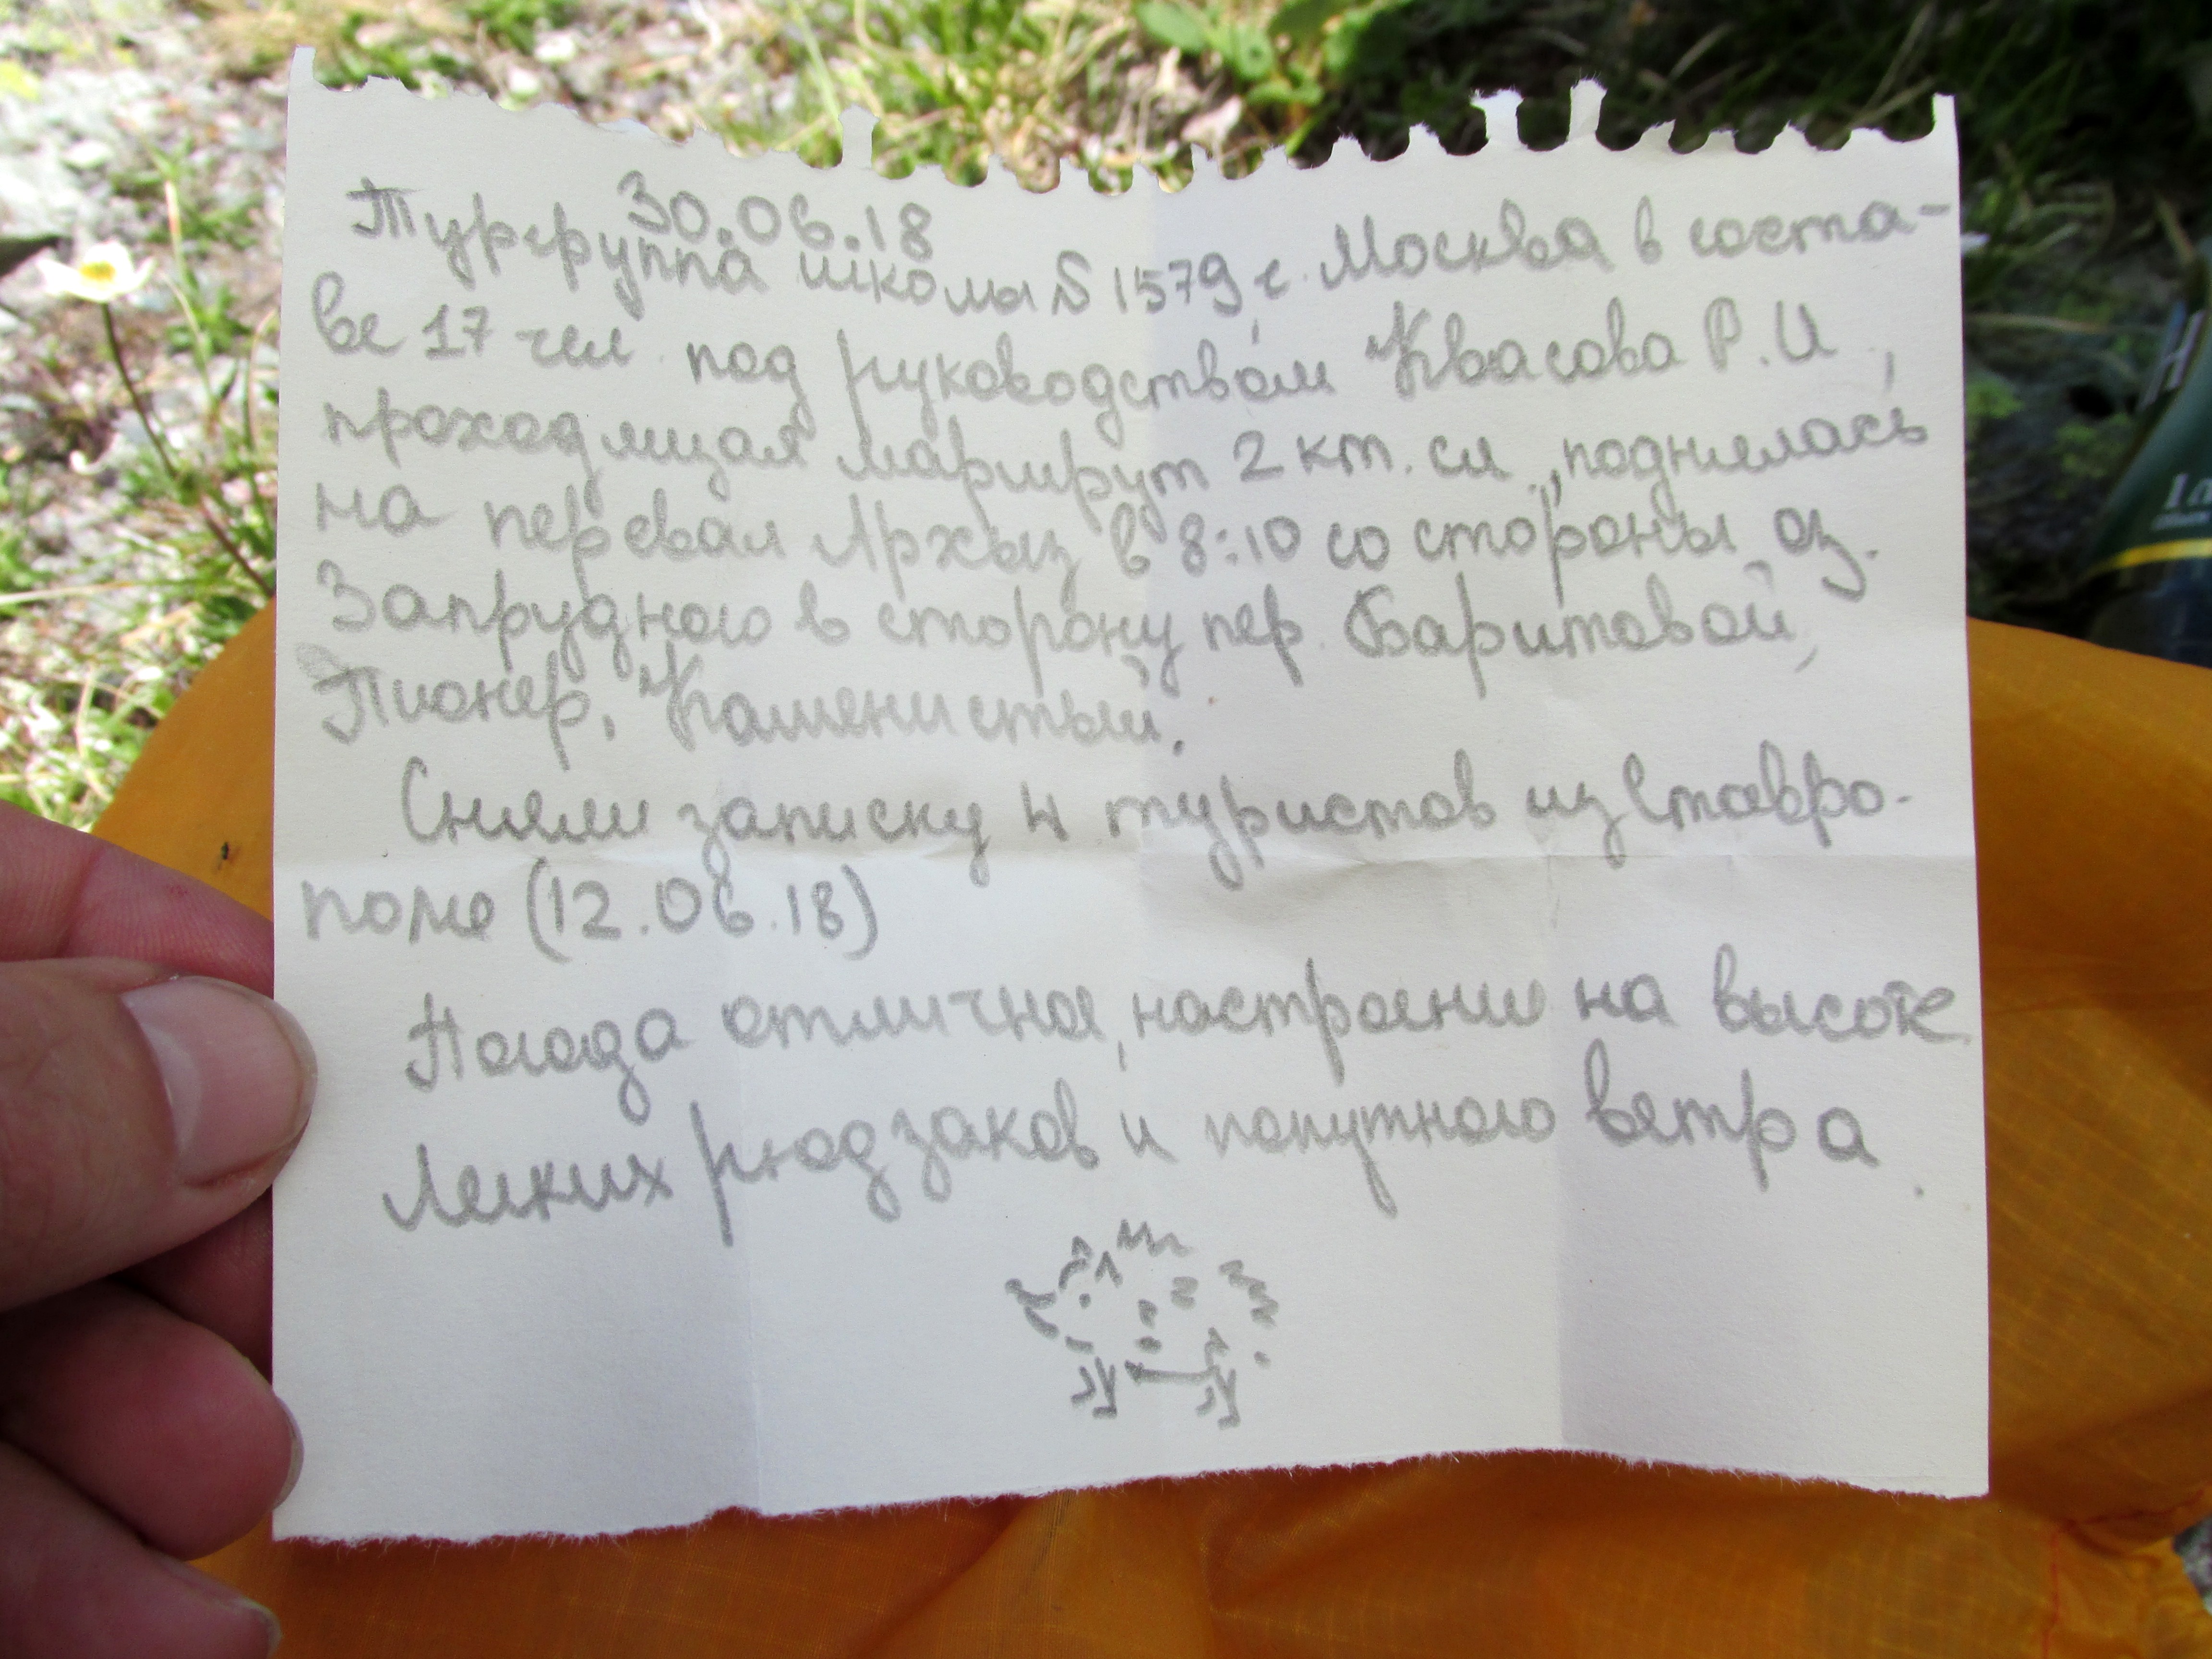 30.06.18
Тургруппа школы № 1579, г. Москва в соста-
ве 17 чел под руководством Квасова Р. И,
проходящая маршрут 2 кт. сл., поднялась
на перевал Архыз в 8:10 со стороны оз.
Запрудного в сторону пер. Баритовый,
Пионер, Каменистый.
Сняли записку 4 туристов из Ставро-
поля (12.06.18)
Погода отличная, настроение на высоте
Легких рюдзаков и попутного ветра.